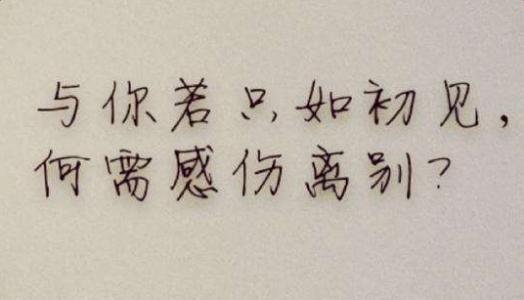 与你若只如初见，
何需感伤离别？